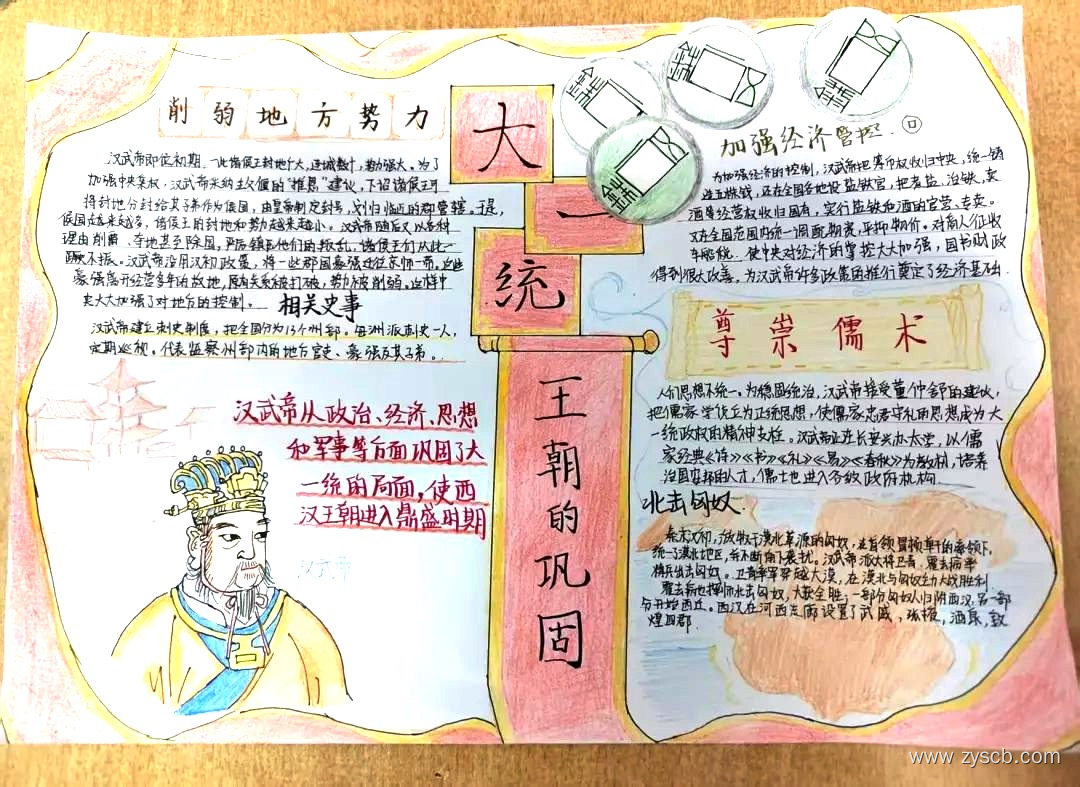 削弱地方势力
汉武帝即位初期,一些诸侯王封地广大,连城数十,势力强大。为了
加强中央集权,汉武帝采纳主父偃的"推恩"建议,下诏诸侯王可
将封地分封给其子弟作为侯国,由皇帝制定封号,划归临近的郡管辖。于是,
侯国越来越多,诸侯王的封地和势力越来越小。汉武帝随后又以各种
理由削爵、夺地甚至除国,严厉镇压他们的叛乱,诸侯王们从此一
蹶不振。汉武帝沿用汉初政策,将一些郡国豪强迁往京师一带。这些
豪强离开经营多年的故地,原有关系被打破,势力被削弱。这样中
央大大加强了对地方的控制。
相关史事
汉武帝建立刺史制度,把全国分为13个州部。每洲派刺史一人,
定期巡视。代表监察州部内的地方官吏、豪强及其子弟。
汉武帝从政治、经济、思想
和军事等方面巩固了大
一统的局面,使西
汉王朝进入鼎盛时期
汉武帝
大一统
王朝的巩固
加强经济管控
为加强经济的控制,汉武帝把铸币权收归中央,统一铸
造五铢钱,还在全国各地设盐铁官,把煮盐、冶铁、卖
酒等经营权收归国有,实行盐铁和酒的官营、专卖。
又在全国范围内统一调配物资,平抑物价。对商人征收
车船税,使中央对经济的掌控大大加强,国家财政
得到很大改善,为汉武帝许多政策的推行奠定了经济基础.
尊崇儒术
人们思想不统一。为稳固统治,汉武帝接受董仲舒的建议,
把儒家学说立为正统思想,使儒家忠君守礼的思想成为大
一统政权的精神支柱。汉武帝还在长安兴办太学,以儒
家经典《诗》《书》《礼》《易》《春秋》为教材,培养
治国安邦的人才,儒士也进入各级政府机构.
北击匈奴
秦末汉初,放牧于漠北草原的匈奴,在首领冒顿单于的率领下,
统一了漠北地区,并不断南下袭扰。汉武帝派大将卫青、霍去病率
精兵出击匈奴。卫青率军穿越大漠,在漠北与匈奴主力大战胜利
霍去病也挥师北击匈奴,大获全胜;一部分匈奴人归附西汉,另一部
分开始西迁。西汉在河西走廊设置了武威,张掖,酒泉,敦
煌四郡.
www.zyscb.com